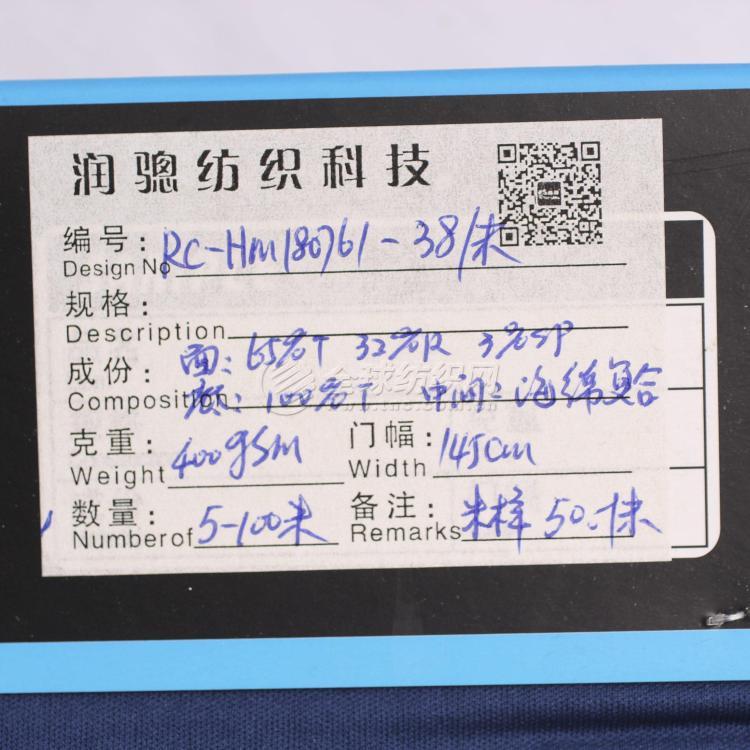 润骢纺织科技
编号: RC-HM180761-38/米
Design No
规格:
Description
成份: 面: 65%T 32%R 3%SP
Composition 底: 100%T 中间: 海绵复合
全球纺织网
www.tnc.com.cn
克重: 400gsm 门幅: 145cm
Weight Width
数量: 5-100米 备注: 米样 50.-1米
Numberof Remarks